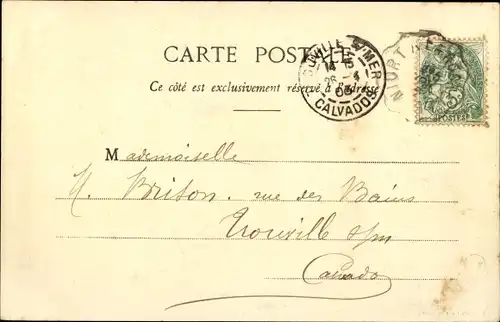 CARTE POSTALE
Ce côté est exclusivement réservé à l'adresse
TROUVILLE S/MER
14 15
26 - 4
03
CALVADOS
NIORT
5c
POSTES
Mademoiselle
Brison. rue des Bains
Trouville s/m
Calvados